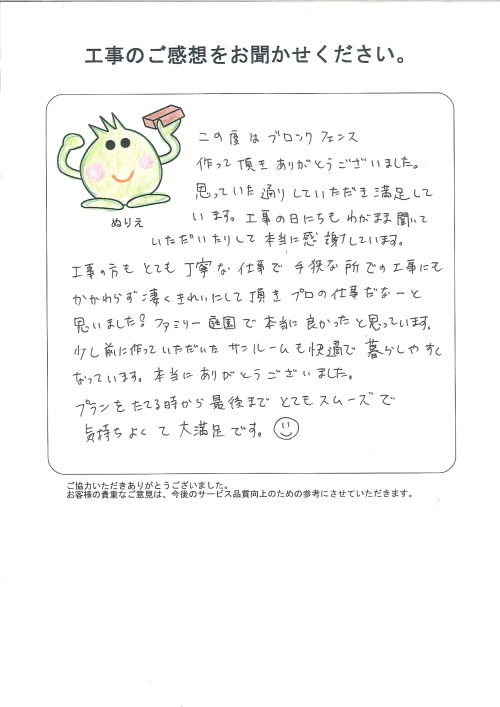 工事のご感想をお聞かせください。
この度はブロックフェンス
作って頂きありがとうございました。
思っていた通りしていただき満足して
います。工事の日にちもわがまま聞いて
いただいたりして本当に感謝しています。
ぬりえ
工事の方もとても丁寧な仕事で手狭な所での工事にも
かかわらず凄くきれいにして頂きプロの仕事だなーと
思いました！ファミリー庭園で本当に良かったと思っています。
少し前に作っていただいたサンルームも快適で暮らしやすく
なっています。本当にありがとうございました。
プランをたてる時から最後までとてもスムーズで
気持ちよくて大満足です。
ご協力いただきありがとうございました。
お客様の貴重なご意見は、今後のサービス品質向上のための参考にさせていただきます。